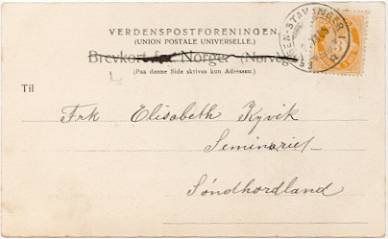 VERDENSPOSTFORENINGEN
(UNION POSTALE UNIVERSELLE.)
Brevkort fra Norge (Norvège)
(Paa denne Side skrives kun Adressen.)
Til
Frk Elisabeth Kyvik
Seminariet
Søndhordland